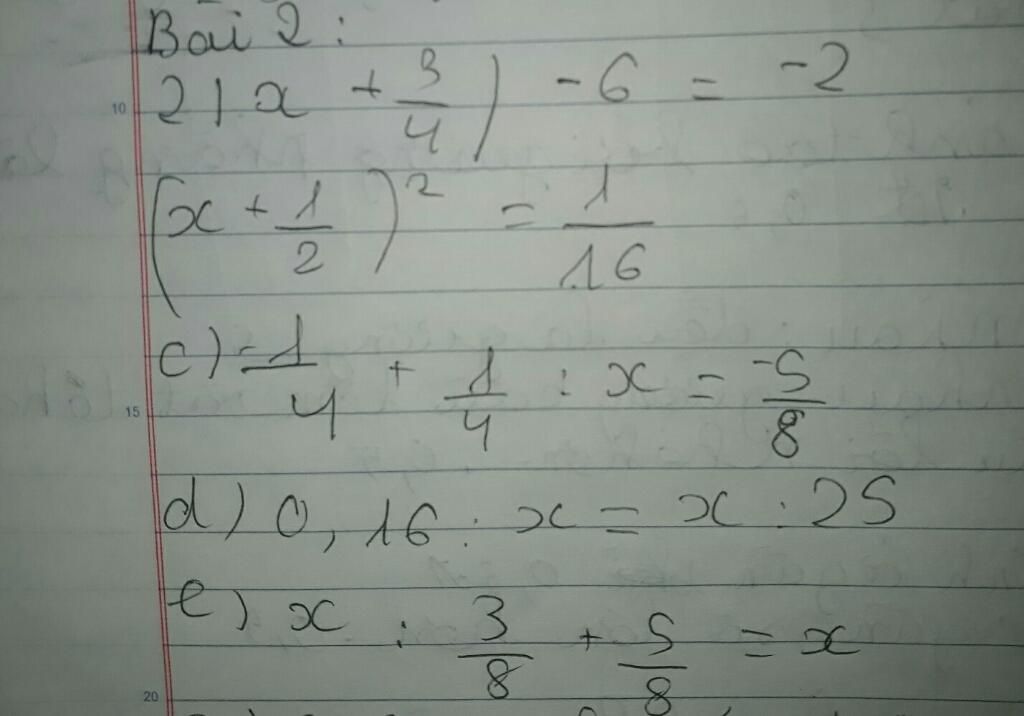 Bài 2:
10 2|x + 3/4| - 6 = -2
(x + 1/2)² = 1/16
15 c) -1/4 + 1/4 : x = -5/8
d) 0,16 : x = x : 25
e) x : 3/8 + 5/8 = x
20